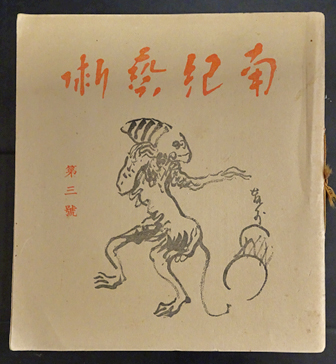 南紀藝術
第三號